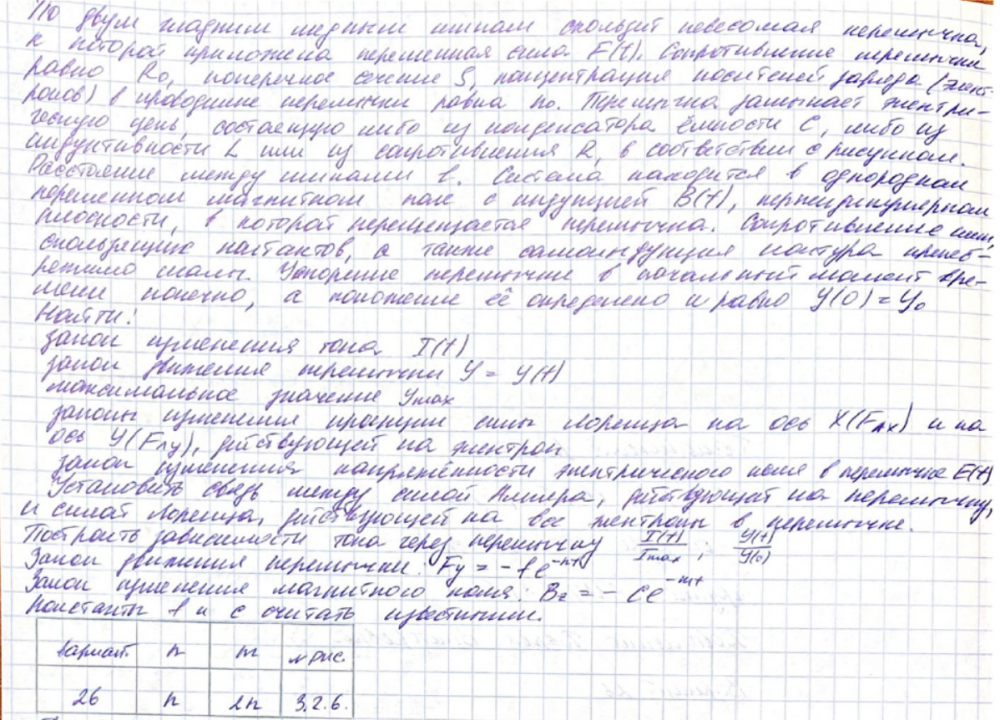 По двум гладким медным шинам скользит невесомая перемычка,
к которой приложена переменная сила F(t). Сопротивление перемычки
равно R₀, поперечное сечение S, концентрация носителей заряда (элект-
ронов) в проводнике перемычки равна n₀. Перемычка замыкает электри-
ческую цепь, состоящую либо из конденсатора ёмкости C, либо из
индуктивности L или из сопротивления R, в соответствии с рисунком.
Расстояние между шинами l. Система находится в однородном
переменном магнитном поле с индукцией B(t), перпендикулярном
плоскости, в которой перемещается перемычка. Сопротивление шин,
скользящих контактов, а также самоиндукция контура пренеб-
режимо малы. Ускорение перемычки в начальный момент вре-
мени конечно, а положение её определено и равно y(0) = y₀
Найти:
закон изменения тока I(t)
закон движения перемычки y = y(t)
максимальное значение ymax
законы изменения проекции силы Лоренца на ось X(Fлx) и на
ось Y(Fлy), действующей на электрон
закон изменения напряжённости электрического поля в перемычке E(t)
Установить связь между силой Ампера, действующей на перемычку,
и силой Лоренца, действующей на все электроны в перемычке.
Построить зависимости тока через перемычку I(t)/Imax ; y(t)/y(0)
Закон движения перемычки: Fy = - f e^-nt
Закон изменения магнитного поля: Bz = - c e^-mt
Константы f и c считать известными.
вариант n m № рис.
26 n 2n 3.2.6.